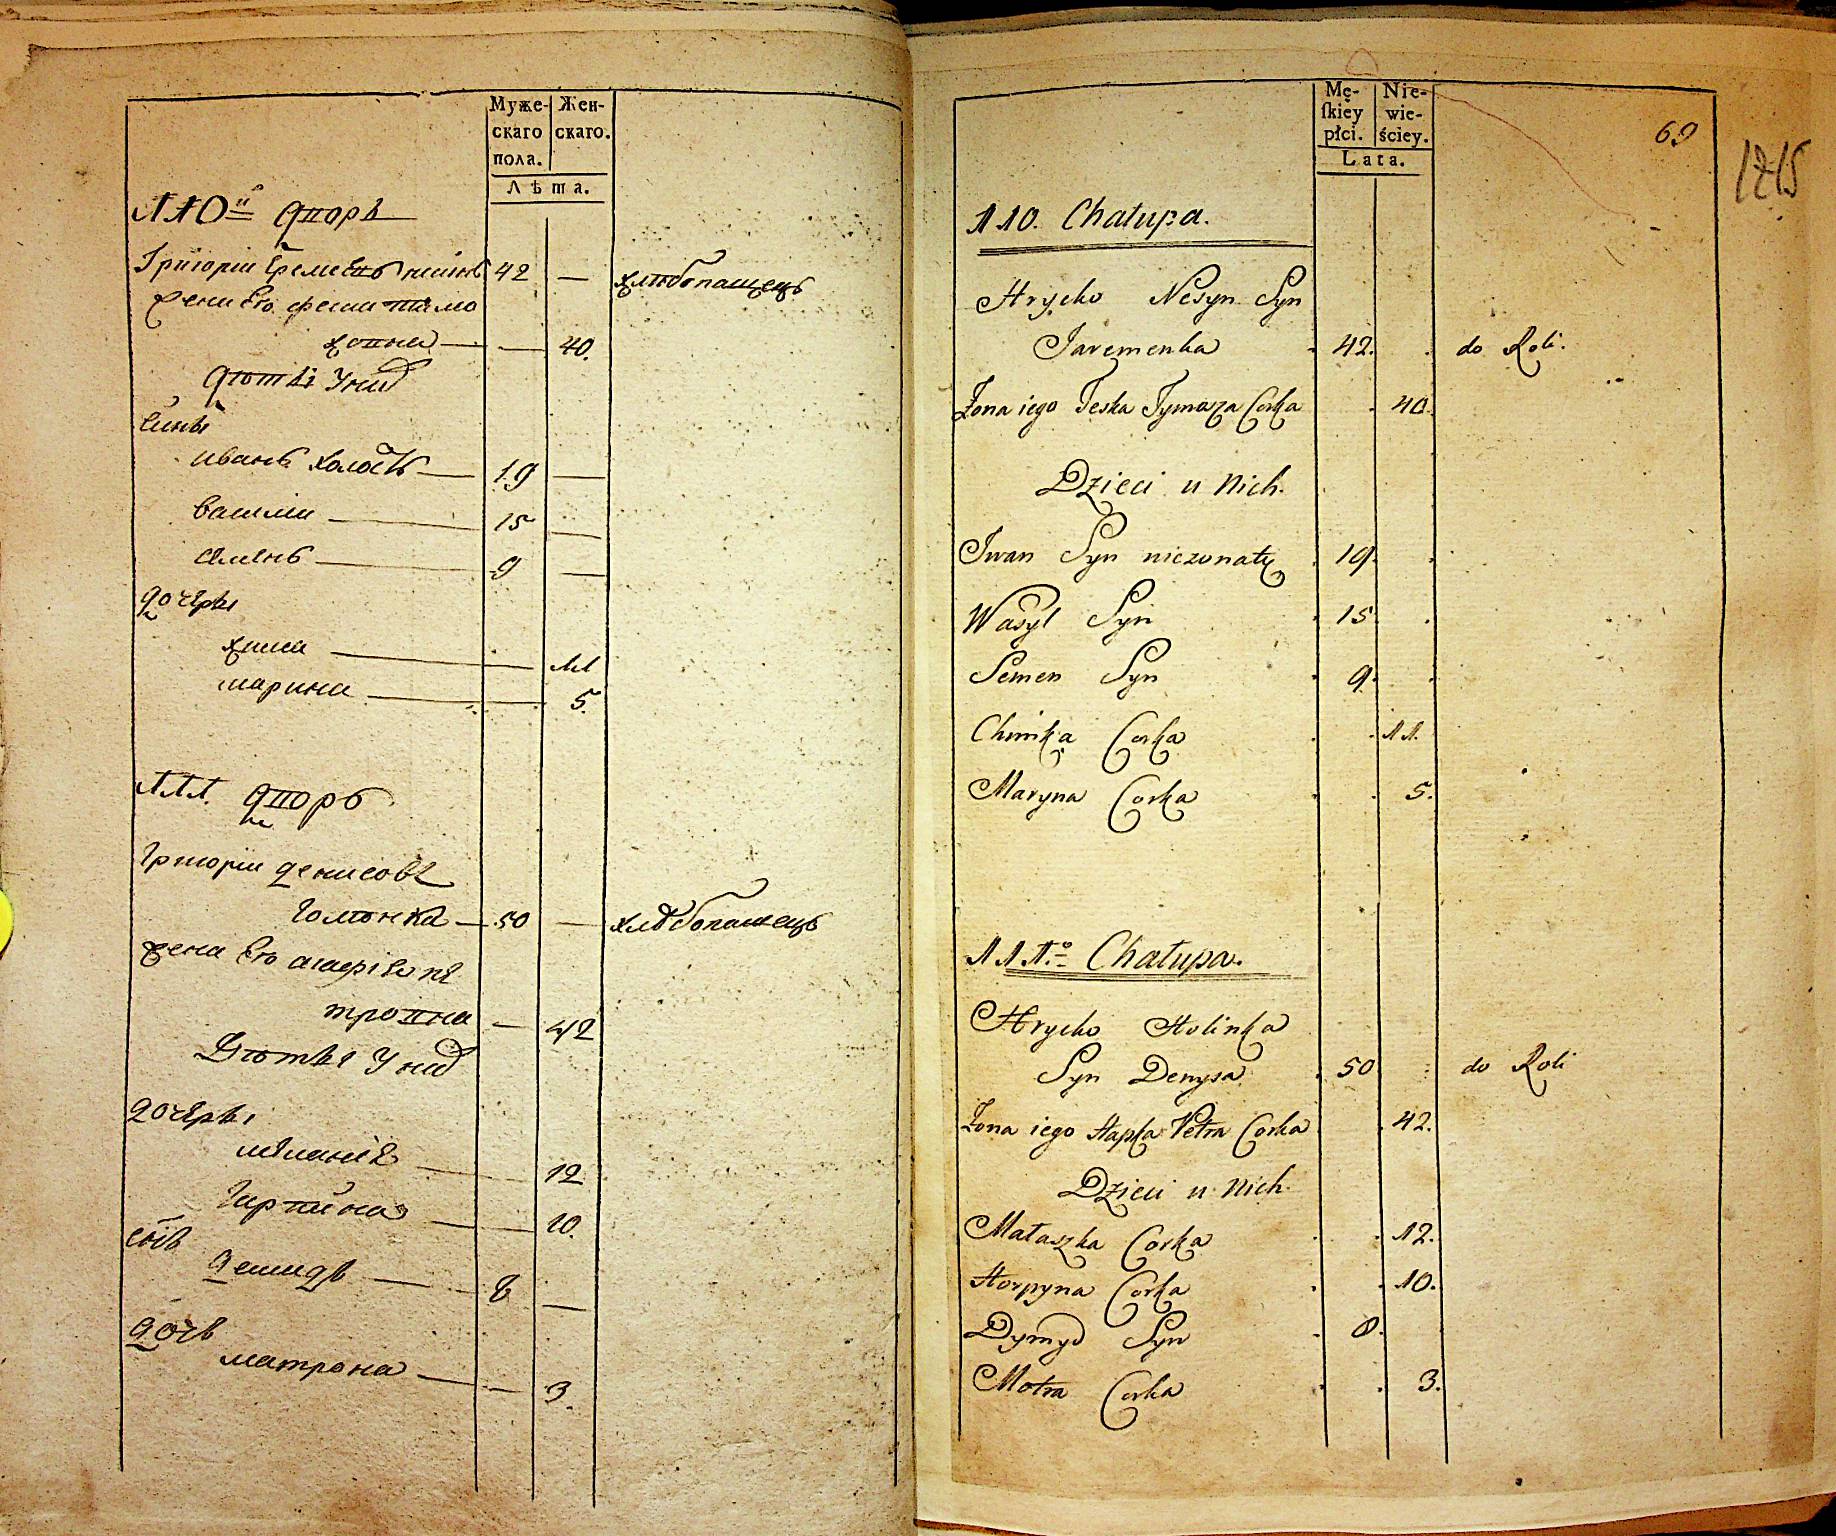 Муже-
скаго
пола.
Жен-
скаго.
Лѣта.
110й дворъ
Григорiи Еремеевъ 42 — хлѣбопашецъ
жена Ево
— — 40.
дѣти У нид
Сины
иванъ холостъ — 19 —
василии — 15 —
семенъ — 9 —
дочери
хима — 11
марина — 5.
111. дворъ
Григории денисовъ
50 — хлѣбопашецъ
жена Ево агафiя пе
тровна — 42
Дѣти У нид
дочери
меланiя — 12
Гарпина — 10.
сынъ
демидъ — 8 —
дочь
матрона — 3.
Mę-
skiey
płci.
Nie-
wie-
ściey.
Lata.
69
1215
110. Chałupa.
Hrycko Nesyn Syn
Jaremenka 42. do Roli.
Żona iego Feska Tymosza Corka 40.
Dzieci u Nich.
Iwan Syn niezonaty 19.
Wasyl Syn 15.
Semen Syn 9.
Chimka Corka 11.
Maryna Corka 5.
111.o Chałupa.
Hrycko Holinka
Syn Denysa 50 do Roli
Żona iego Hapka Petra Corka 42.
Dzieci u Nich.
Małaszka Corka 12.
Horpyna Corka 10.
Dymyd Syn 8.
Motra Corka 3.